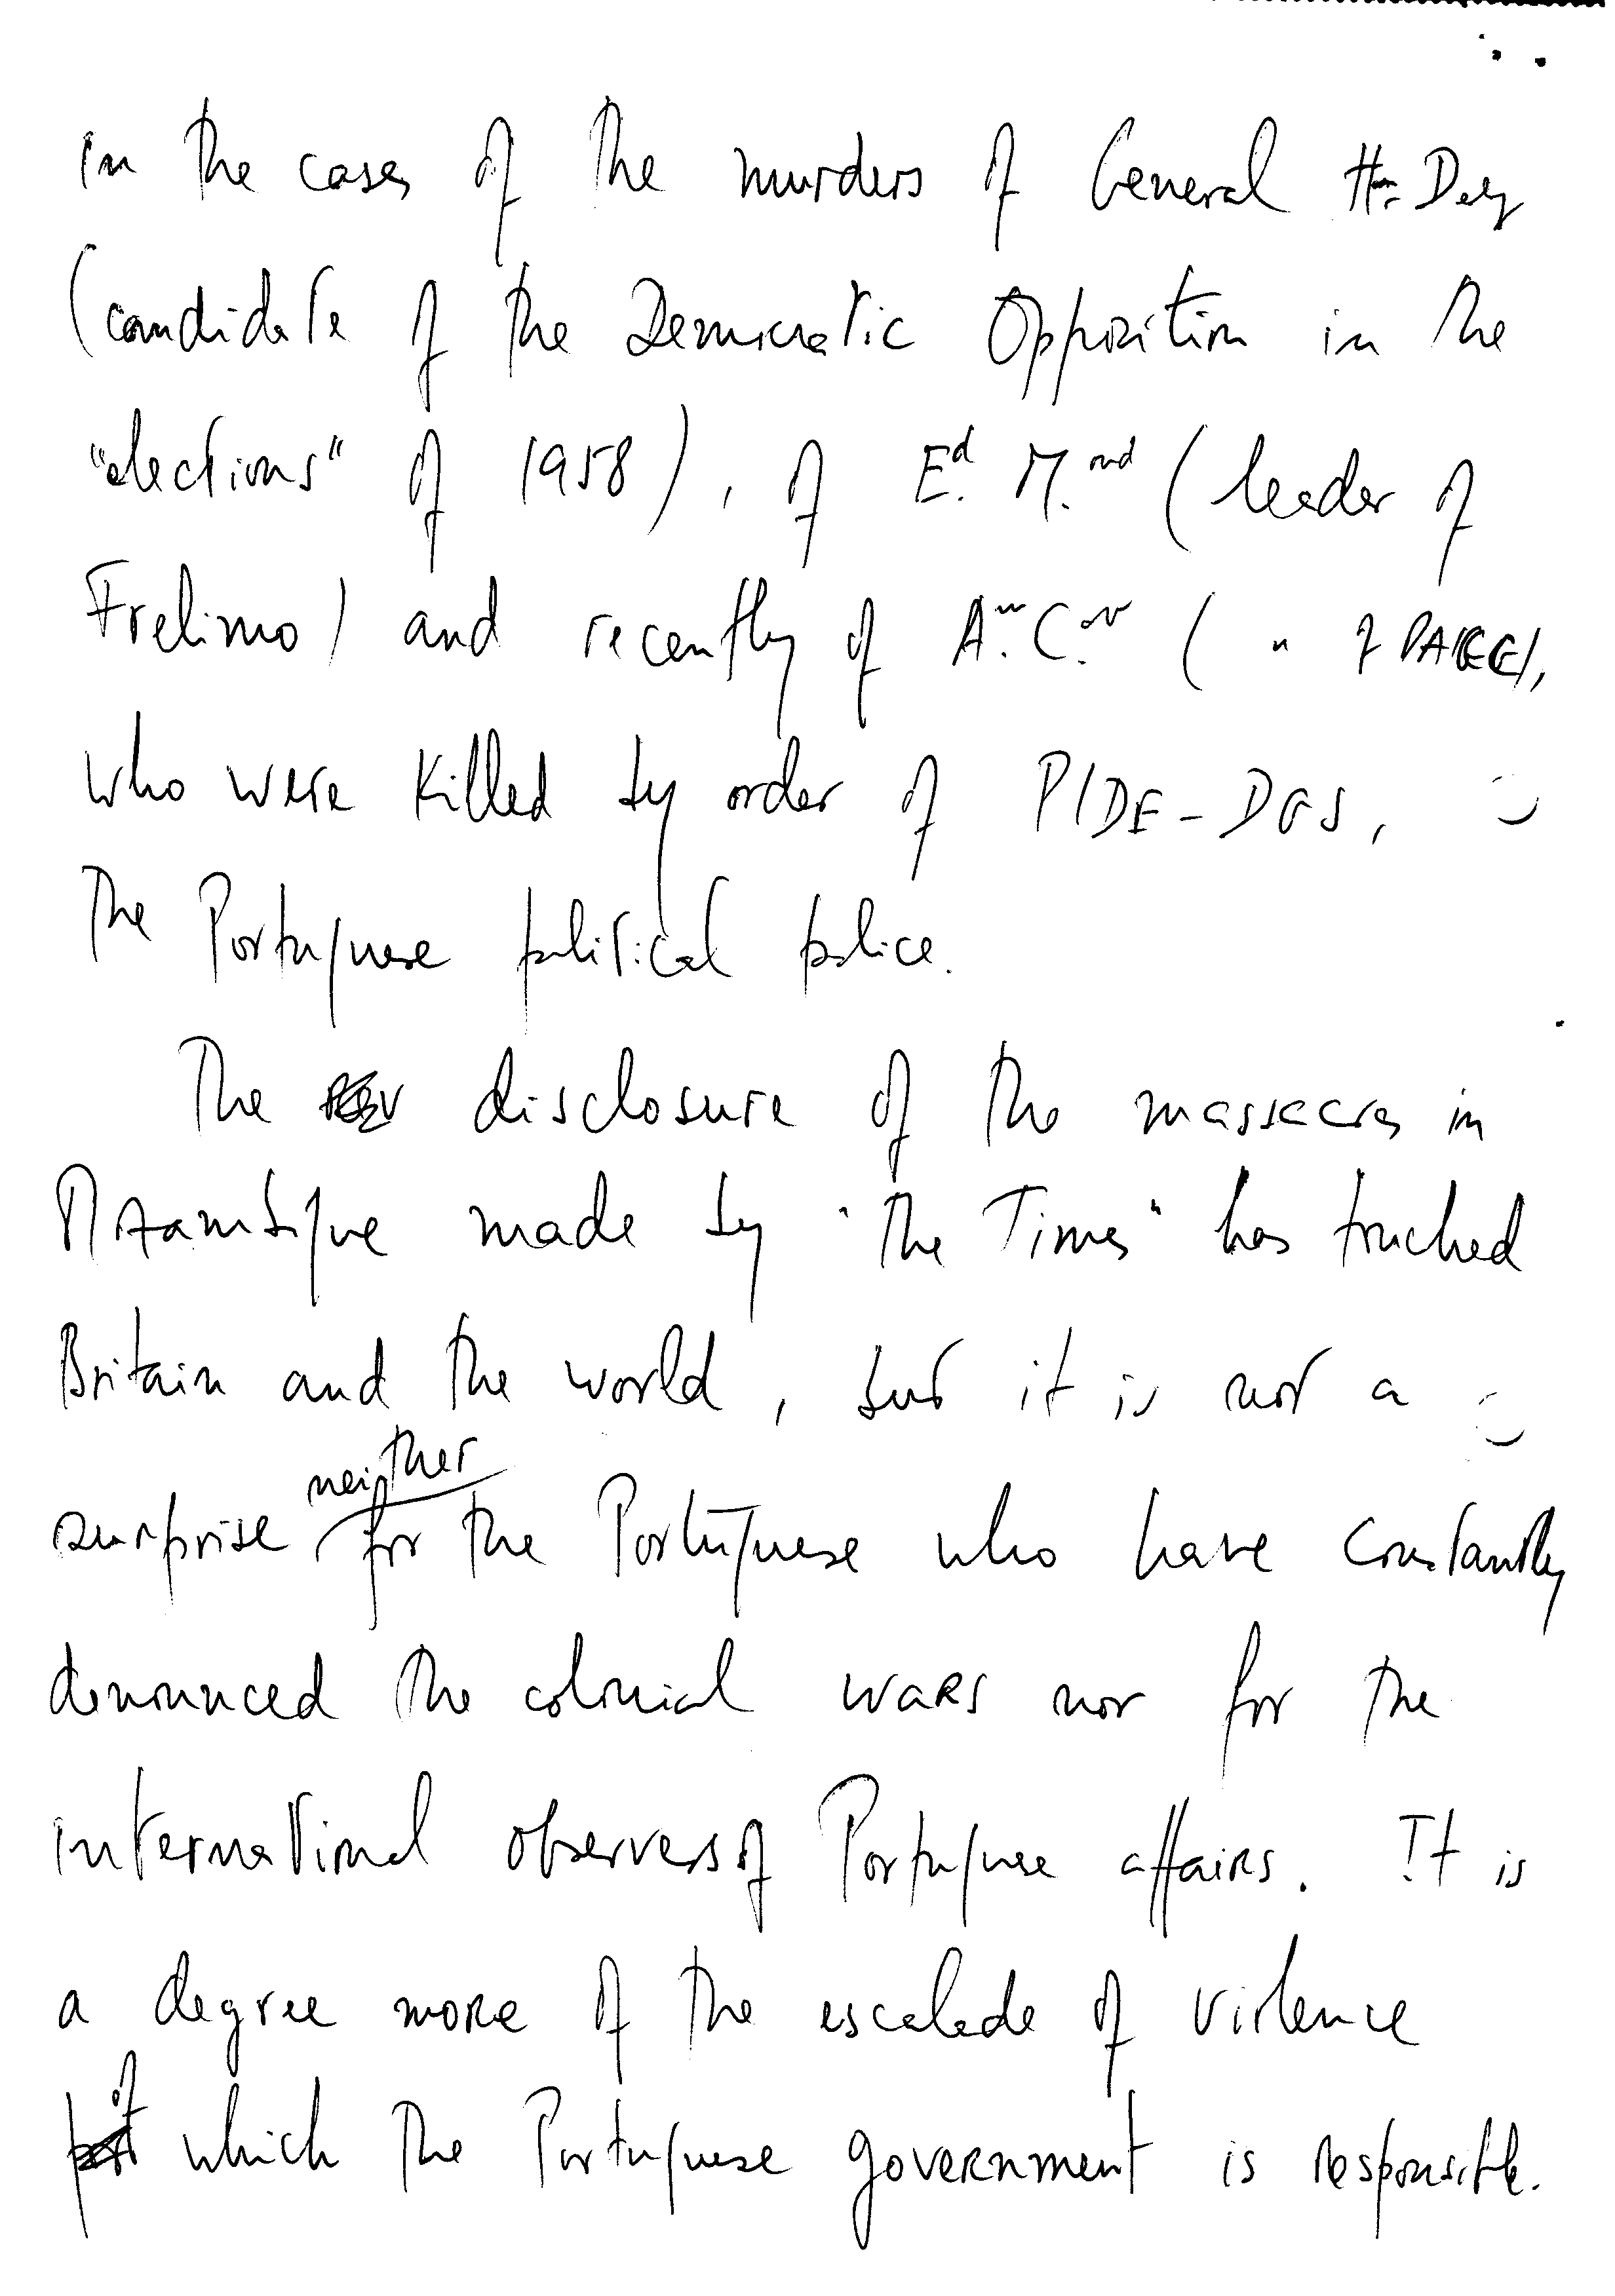 in the cases of the murders of General H. Delg
(candidate of the Democratic Opposition in the
"elections" of 1958), of Ed. M.ond (leader of
Frelimo) and recently of Am. C. (" of PAIGC),
who were killed by order of PIDE-DGS,
the Portuguese political police.
The disclosure of the massacres in
Mozambique made by "the Times" has touched
Britain and the world, but it is not a
surprise neither for the Portuguese who have constantly
denounced the colonial wars nor for the
international observers of Portuguese affairs. It is
a degree more of the escalade of violence
of which the Portuguese government is responsible.